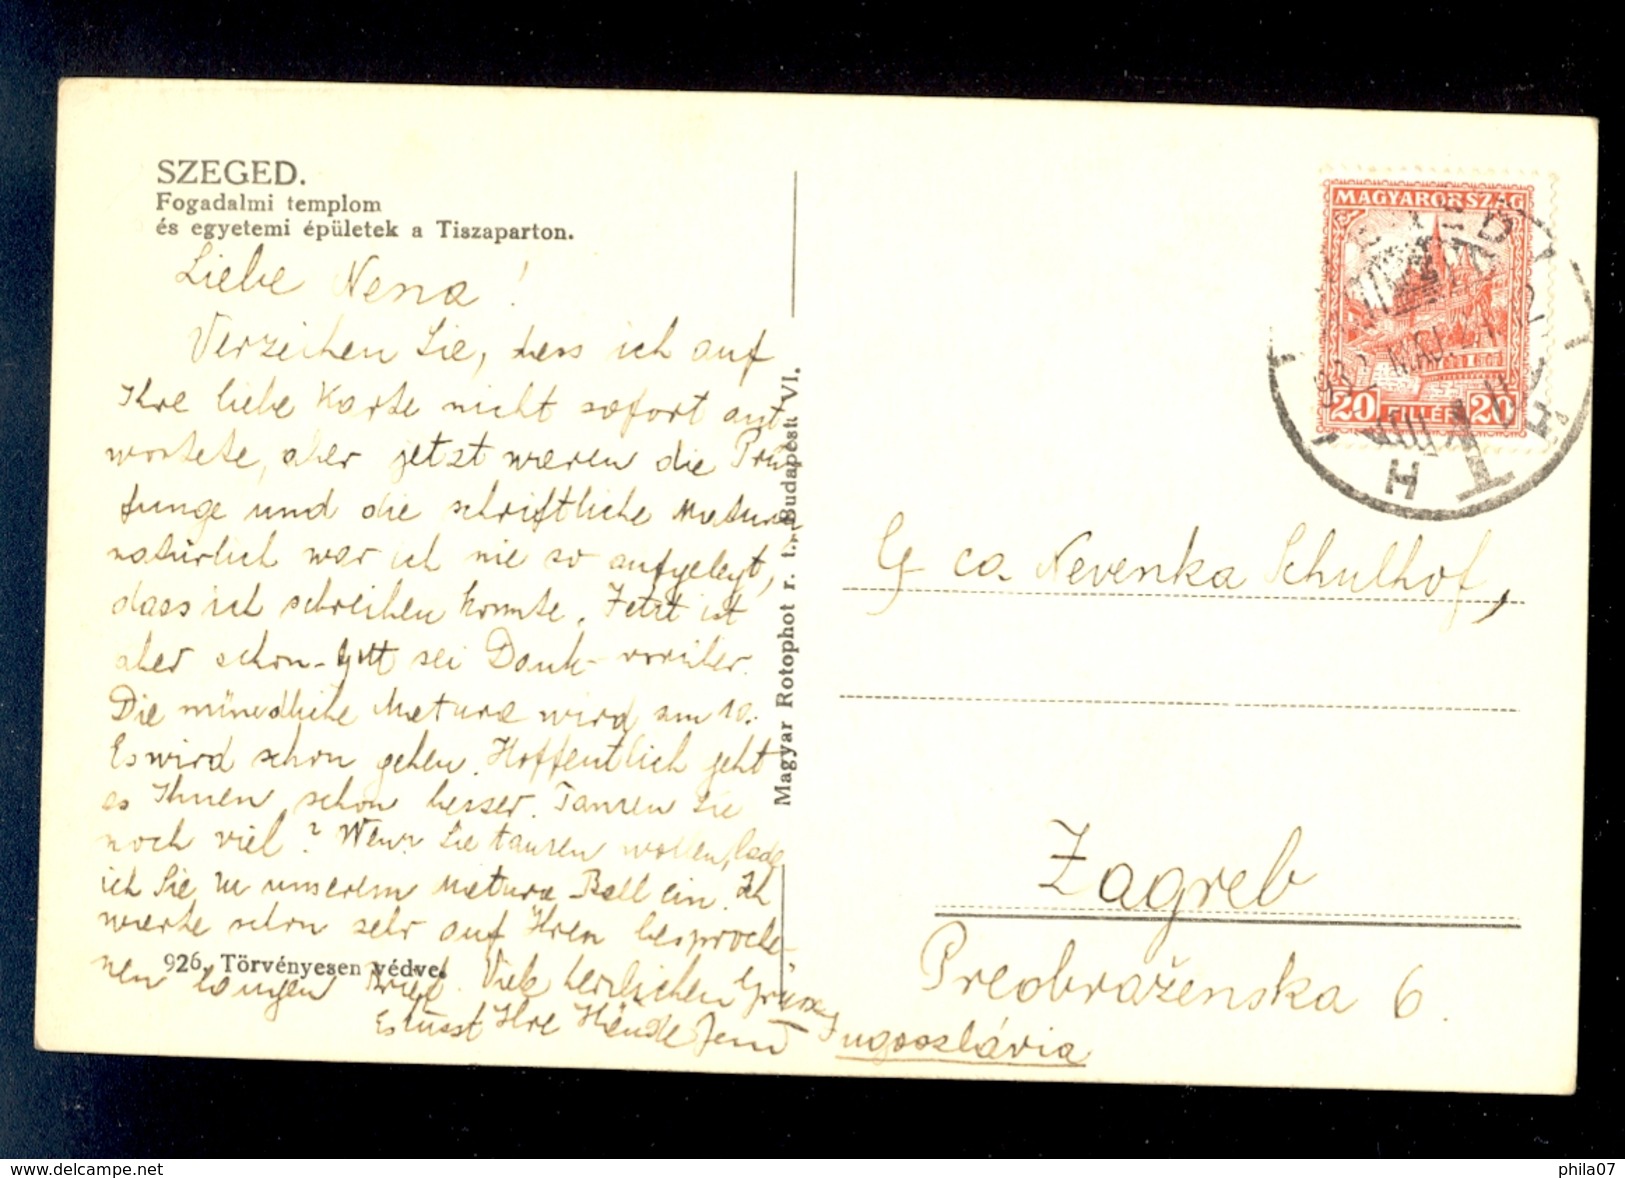 SZEGED.
Fogadalmi templom
és egyetemi épületek a Tiszaparton.
Liebe Nena!
Verzeihen Sie, dass ich auf
Ihre liebe Karte nicht sofort ant-
wortete, aber jetzt waren die Prü-
funge und die schriftliche Matura
natürlich war ich nie so aufgelegt,
dass ich schreiben konnte. Jetzt ist
aber schon - Gott sei Dank - vorüber.
Die mündliche Matura wird am 10.
Es wird schon gehen. Hoffentlich geht
es Ihnen schon besser. Tanzen Sie
noch viel? Wenn Sie tanzen wollen, lade
ich Sie zu unserem Matura Ball ein. Ich
warte schon sehr auf Ihren besproche-
nen langen Brief. Viele herzlichen Grüsse
Es küsst Ihre Hände Jenő
926. Törvényesen védve.
Magyar Rotophot r. t., Budapest. VI.
MAGYARORSZÁG
20 FILLÉR 20
SZEGED 1
932 MÁJ. 21. 12
T
H
G ca Nevenka Schulhof,
Zagreb
Preobraženska 6.
Jugooszlávia
www.delcampe.net
phila07